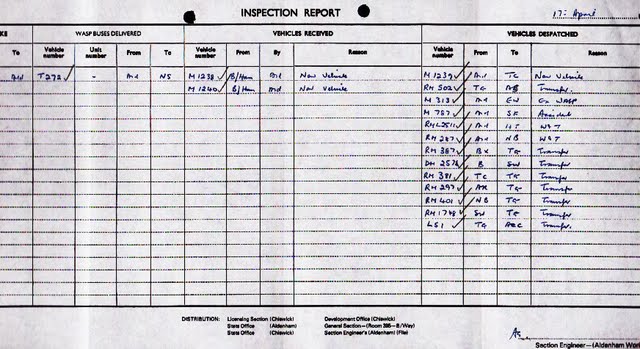 INSPECTION REPORT 17: April
KE WASP BUSES DELIVERED VEHICLES RECEIVED VEHICLES DESPATCHED
To Vehicle number Unit number From To Vehicle number From By Reason Vehicle number From To Reason
Ald T272 - Ald NS M1238 B/Ham Ald New Vehicle M1239 Ald TC New Vehicle
M1240 B/Ham Ald New Vehicle RM502 TG Transfer
M313 Ald EW Ex WASP
M757 Ald SF Accident
RML2511 Ald HT W&T
RM287 Ald NB W&T
RM387 BX TG Transfer
DM2576 B SW Transfer
RM381 TC TG Transfer
RM297 AR TG Transfer
RM401 NB TG Transfer
RM1748 SW TG Transfer
LS1 TG AEC Transfer.
DISTRIBUTION: Licensing Section (Chiswick) Development Office (Chiswick)
Stats Office (Aldenham) General Section—(Room 395—B/Way)
Stats Office (Chiswick) Section Engineer's (Aldenham) (File)
Section Engineer—(Aldenham Wor